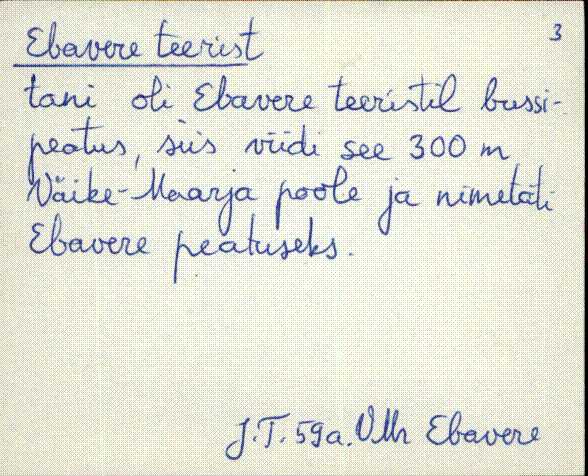 3
Ebavere teerist
tani oli Ebavere teeristil bussi-
peatus, siis viidi see 300 m
Väike-Maarja poole ja nimetati
Ebavere peatuseks.
J.T. 59a. VMr Ebavere